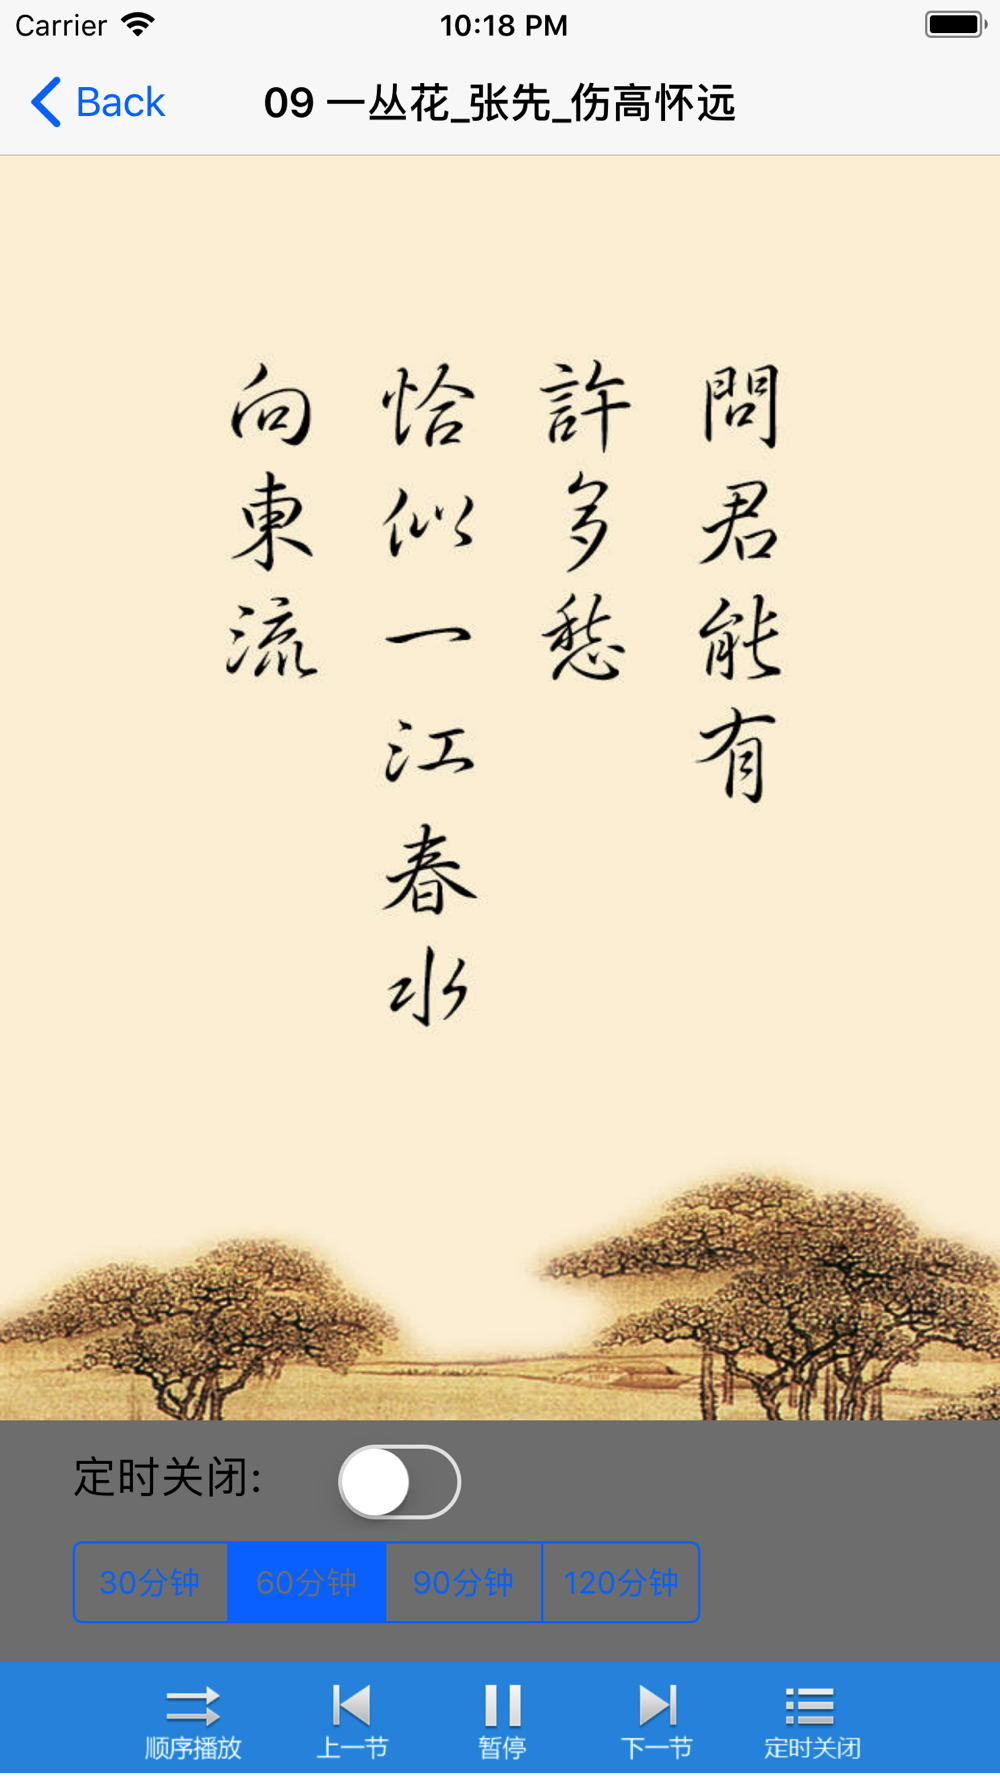 Carrier 10:18 PM
Back 09 一丛花_张先_伤高怀远
問君能有
許多愁
恰似一江春水
向東流
定时关闭:
30分钟 60分钟 90分钟 120分钟
顺序播放 上一节 暂停 下一节 定时关闭